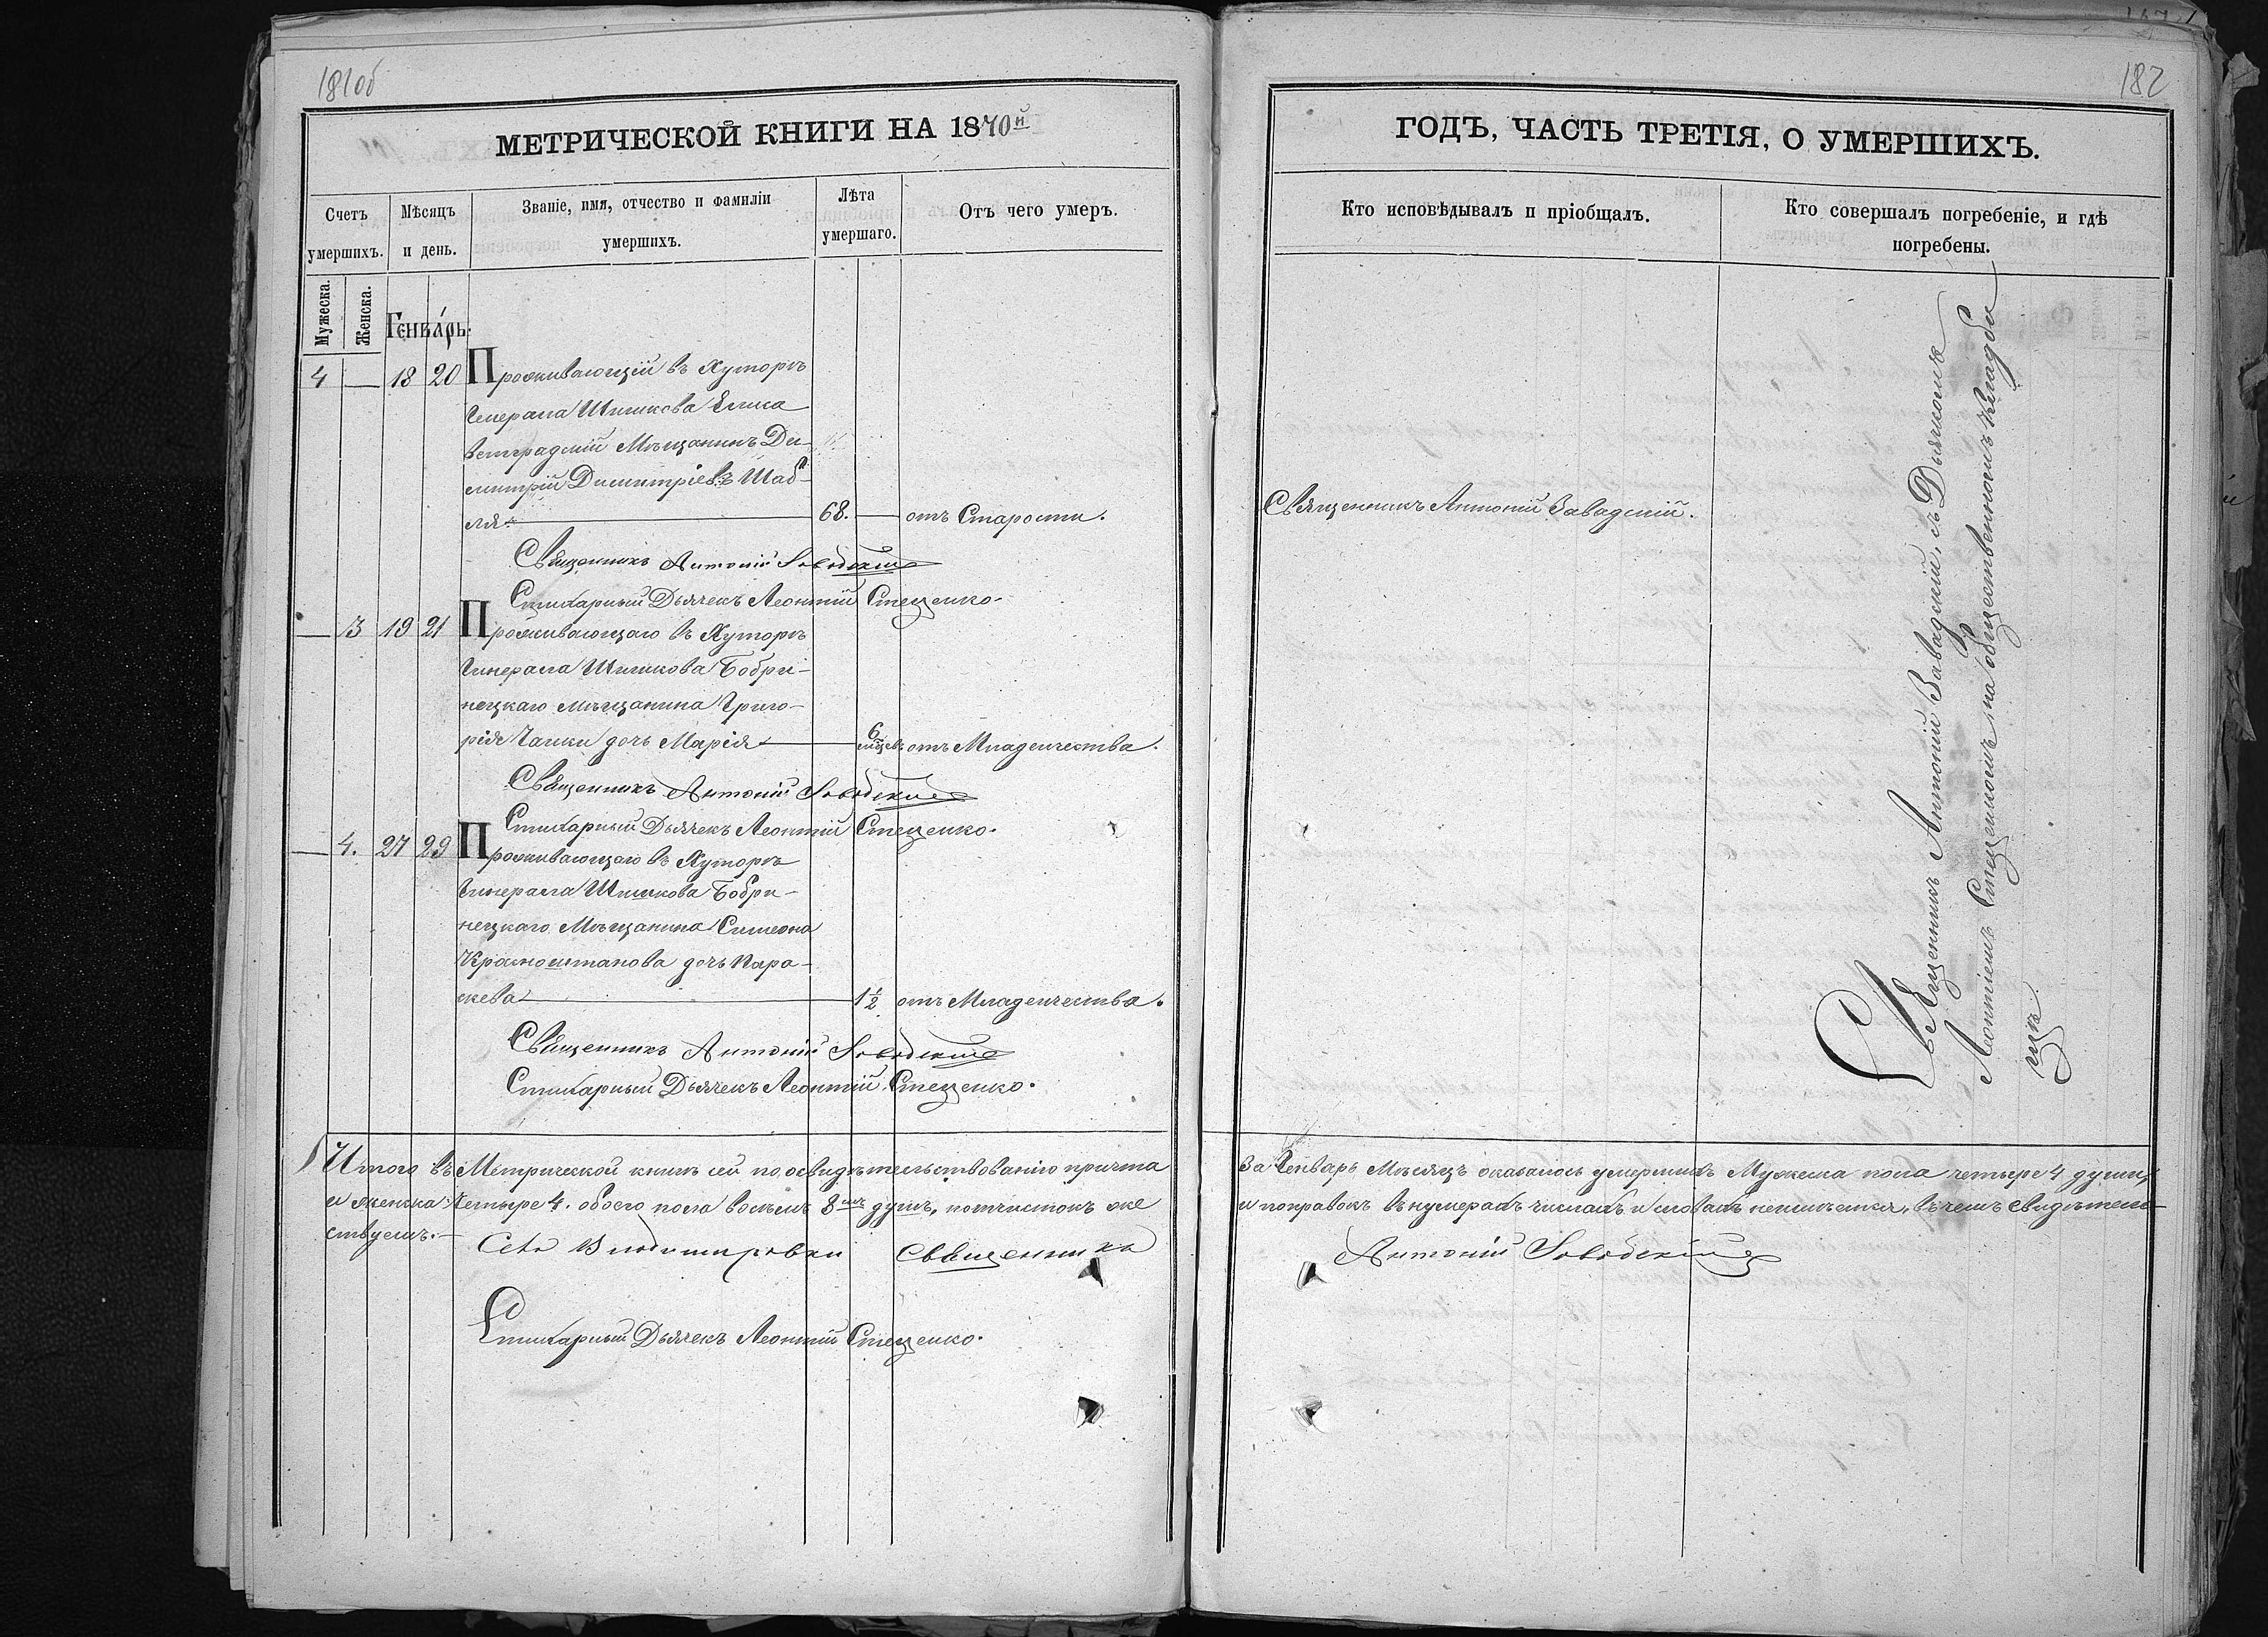 181об
МЕТРИЧЕСКОЙ КНИГИ НА 1870й
Счетъ
умершихъ.
Мужеска.
Женска.
Мѣсяцъ
и день.
Званіе, имя, отчество и фамиліи
умершихъ.
Лѣта
умершаго.
Отъ чего умеръ.
Генварь.
4 — 18 20 Проживающій въ Хуторѣ
Генерала Шишкова Елиса
ветградскій Мѣщанинъ Ди-
митрій Димитріевъ Шаб-
ля — 68. — отъ Старости.
Священникъ Антоній Заводскій
Стихарный Дьячекъ Леонтій Стеценко.
— 3 19 21 Проживающаго въ Хуторѣ
Генерала Шишкова Бобри-
нецкаго мѣщанина Григо-
рія Чайки дочь Марія — 6 мцевъ отъ Младенчества.
Священникъ Антоній Заводскій
Стихарный Дьячекъ Леонтій Стеценко.
— 4. 27 29 Проживающаго въ Хуторѣ
Генерала Шишкова Бобри-
нецкаго Мѣщанина Симеона
Красноштанова дочь Пара-
скева — 1½ отъ Младенчества.
Священникъ Антоній Заводскій
Стихарный Дьячекъ Леонтій Стеценко.
Итого въ Метрической книгѣ сей по освидѣтельствованію причта
и женска Четыре 4. обоего пола восемь 8мь душъ, почистокъ же
ствуемъ.—
Села Владимировки Священникъ
Стихарный Дьячекъ Леонтій Стеценко.
182
ГОДЪ, ЧАСТЬ ТРЕТІЯ, О УМЕРШИХЪ.
Кто исповѣдывалъ и пріобщалъ.
Кто совершалъ погребеніе, и гдѣ
погребены.
Священникъ Антоній Завадскій.
Священникъ Антоній Завадскій, съ Дьячкомъ
Леонтіемъ Стеценкомъ, на общественномъ кладби
щѣ.
За Генварь Мѣсяцъ оказалось умершихъ Мужеска пола четыре 4 души,
и поправокъ въ нумерахъ числахъ и словахъ неимѣется, въ чемъ свидѣтель-
Антоній Заводскій